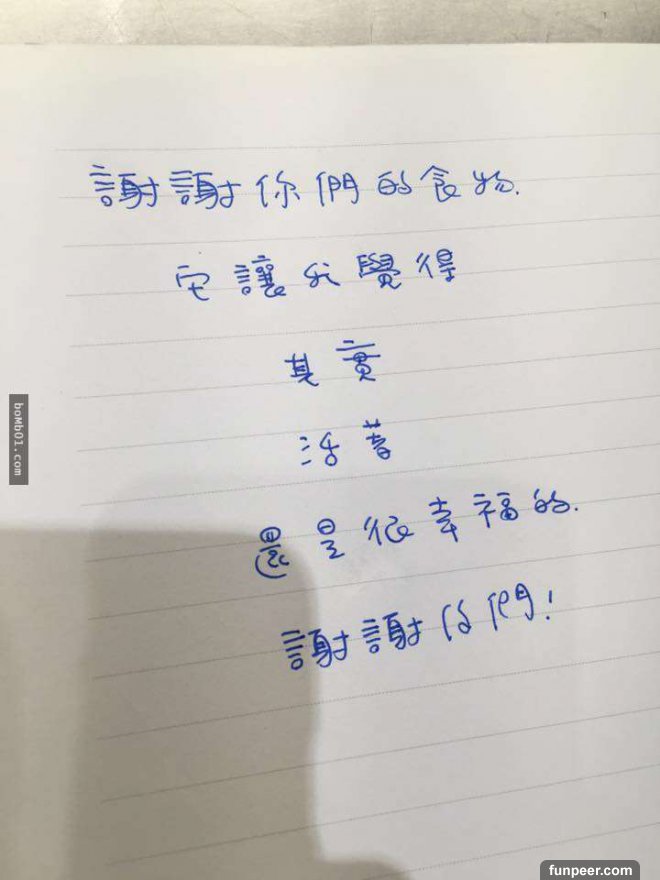 謝謝你們的食物.
它讓我覺得
其實
活著
還是很幸福的.
謝謝你們!
boMb01.com
funpeer.com